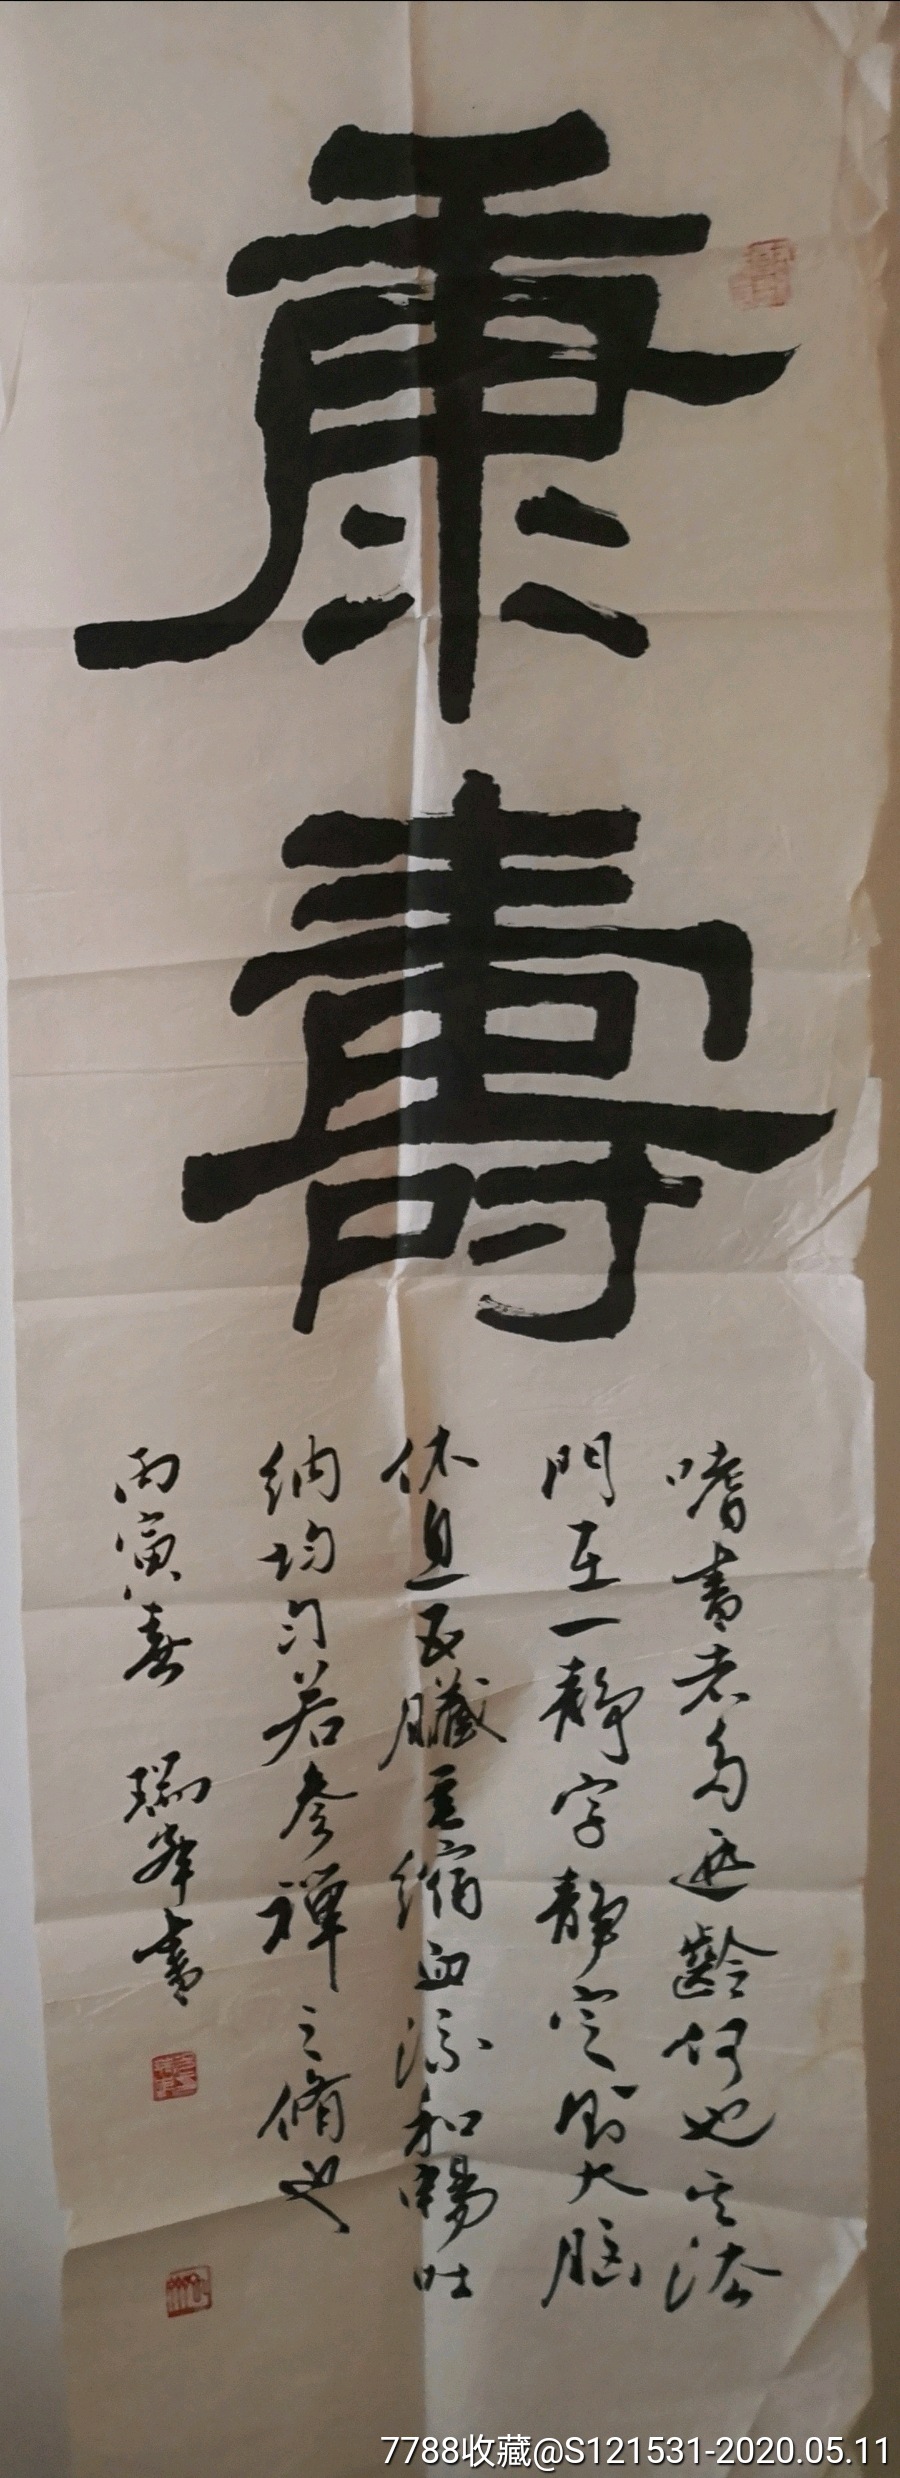 康壽
嗜書者多遐齡何也其法
門在一靜字靜定則大腦
休息五臟互縮血流和暢吐
納均勻若參禪之脩也
丙寅春 瑞峯書
7788收藏@S121531-2020.05.11